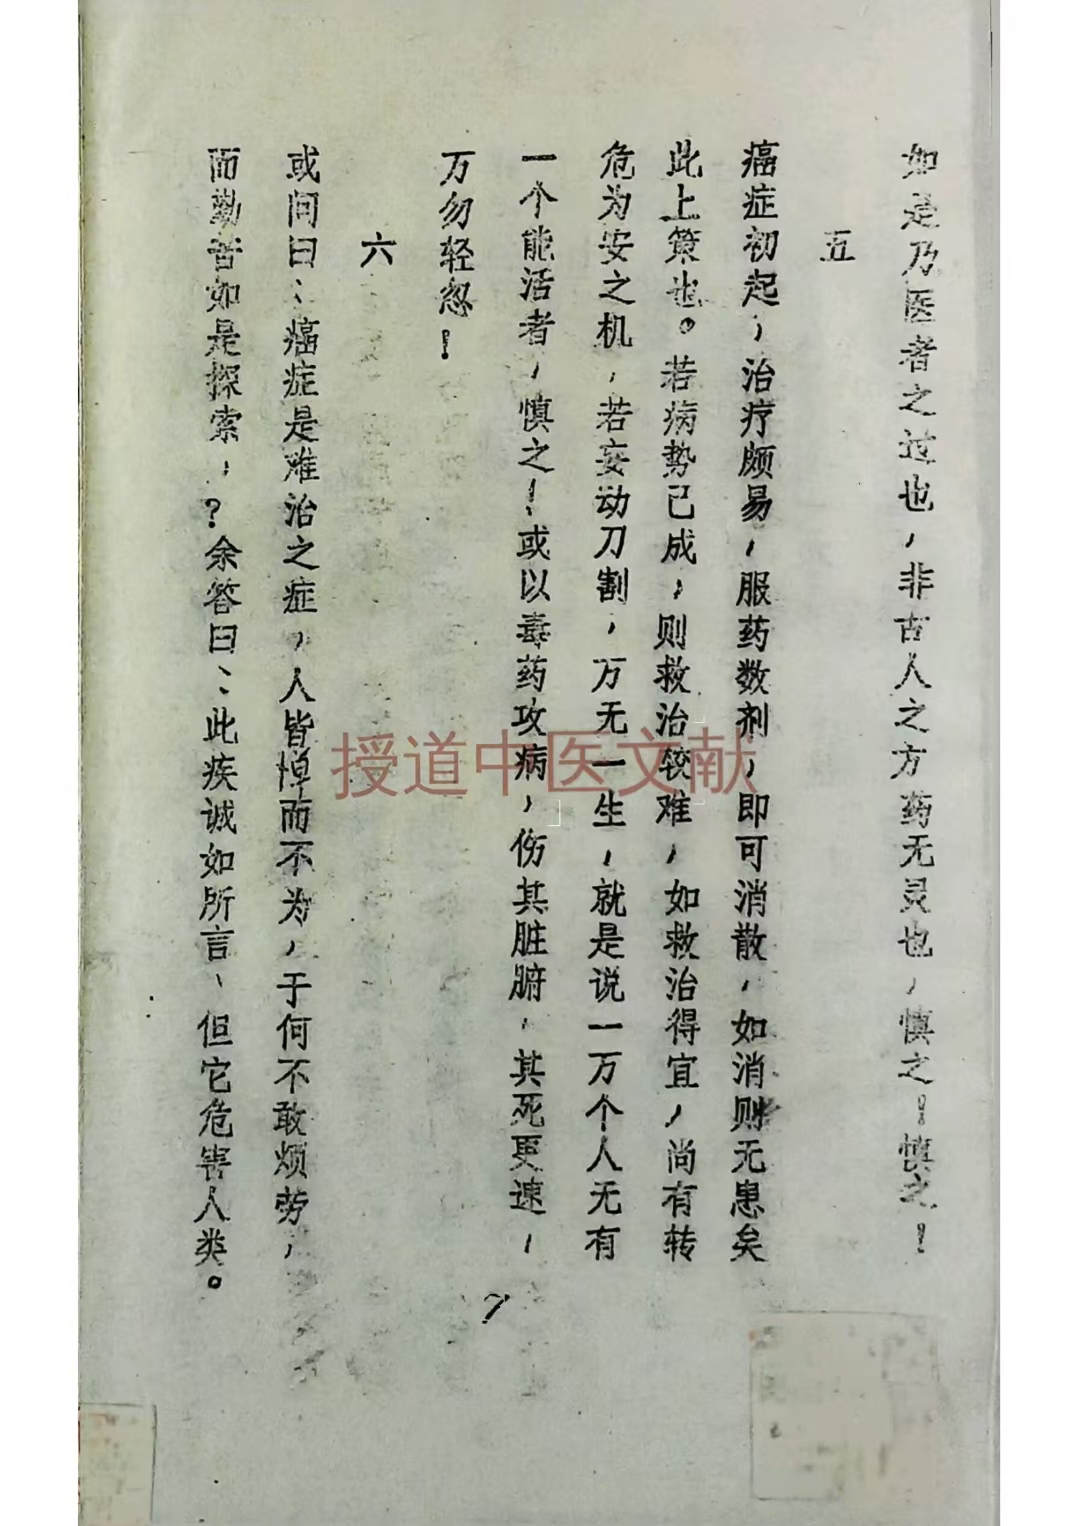 如是乃医者之过也，非古人之方药无灵也，慎之！慎之！
五
癌症初起，治疗颇易，服药数剂，即可消散，如消则无患矣
此上策也。若病势已成，则救治较难，如救治得宜，尚有转
危为安之机，若妄动刀割，万无一生，就是说一万个人无有
一个能活者，慎之！或以毒药攻病，伤其脏腑，其死更速，
万勿轻忽！
六
或问曰、癌症是难治之症，人皆悼而不为，于何不敢烦劳，
而勤苦如是探索，？余答曰、此疾诚如所言、但它危害人类。
7
授道中医文献